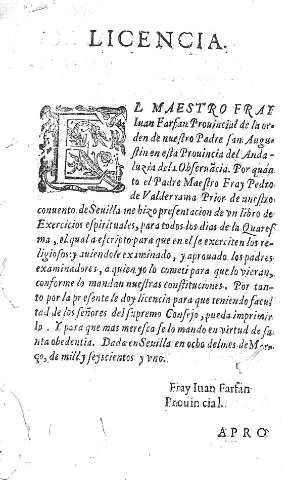 LICENCIA.
EL MAESTRO FRAY
Iuan Farfan Prouincial de la or-
den de nuestro Padre san Augu-
stin en esta Prouincia del Anda-
luzia del a Obseruãcia. Por quãn
to el Padre Maestro Fray Pedro
de Valderrama Prior de nuestro
conuento de Seuilla me hizo presentacion de vn libro de
Exercicios espirituales, para todos los dias de la Quares
ma, el qual a escripto para que en el se exerciten los re-
ligiosos: y auiendole examinado, y aprouado los padres
examinadores, a quien yo lo cometi para que lo vieran,
conforme lo mandau nuestras constituciones. Por tan-
to por la presente le doy licencia para que teniendo facul
tad de los señores del supremo Consejo, pueda imprimir
lo. Y para que mas meresca se lo mando en virtud de sa-
nta obedentia. Dada en Seuilla en ocho del mes de Mar-
ço, de mill y seyscientos y vno.
Fray Iuan Farfan
Prouincial.
APRO